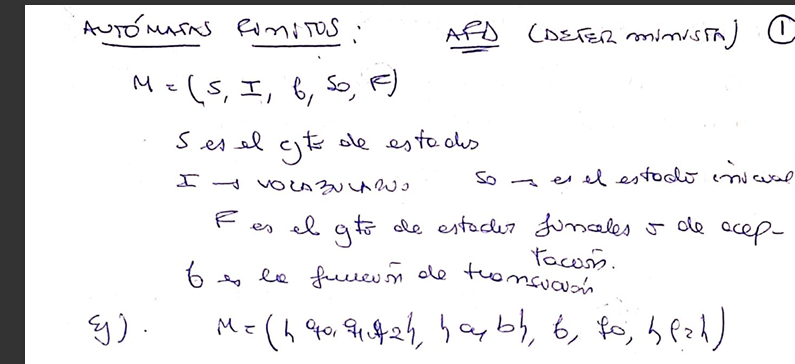 AUTÓMATAS FINITOS: AFD (DETERMINISTA) 1
M = (S, I, б, So, F)
S es el cjto de estados
I → VOCABULARIO So → es el estado inicial
F es el cjto de estados finales o de acep-
tación.
б es la función de transición
Ej). M = ({q0, q1, q2}, {a, b}, б, q0, {q2})